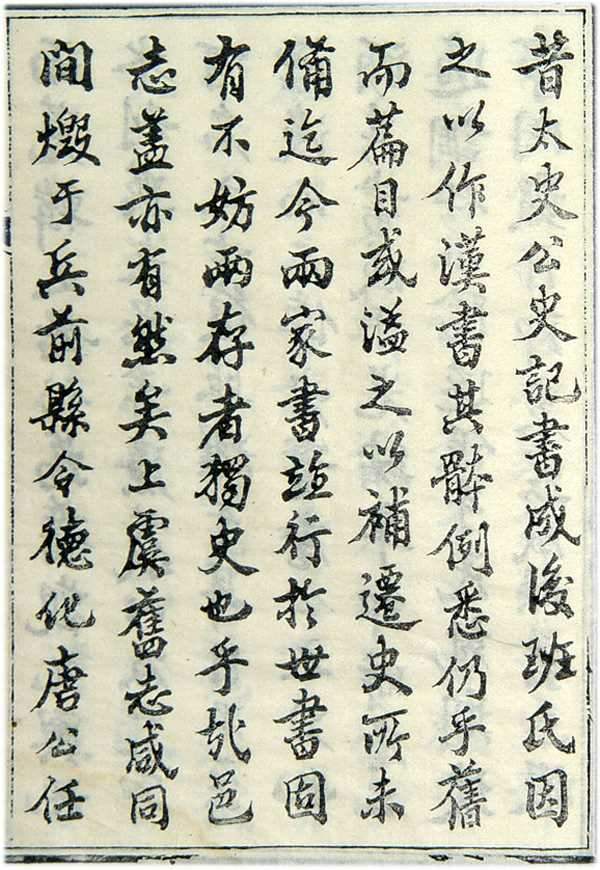 昔太史公史記書成後班氏因
之以作漢書其骵例悉仍乎舊
而篇目或溢之以補遷史所未
備迄今兩家書竝行於世書固
有不妨兩存者獨史也乎哉邑
志盖亦有然矣上虞舊志咸同
間燬于兵前縣令德化唐公任